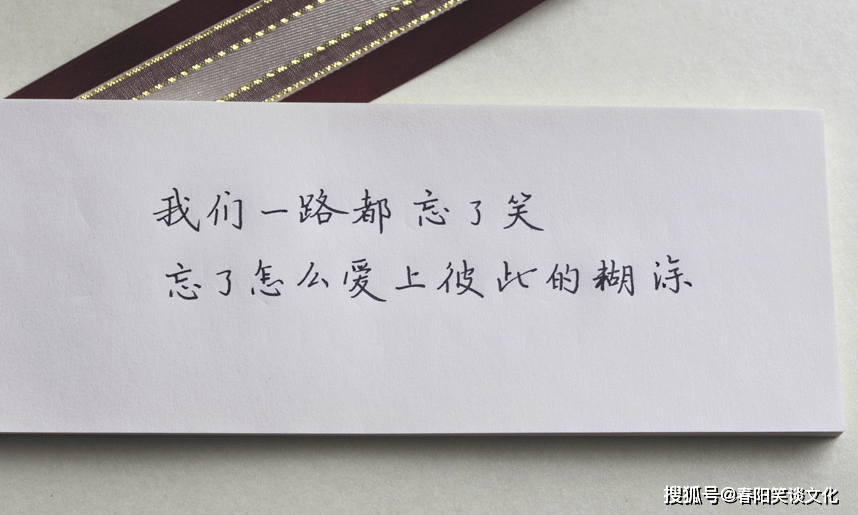 我们一路都忘了笑
忘了怎么爱上彼此的糊涂
搜狐号@春阳笑谈文化